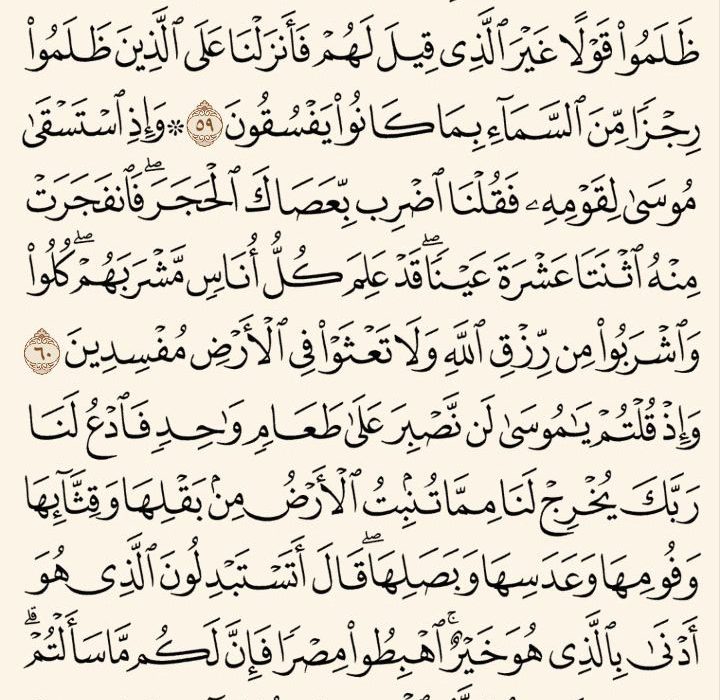 ظَلَمُوا۟ قَوْلًا غَيْرَ ٱلَّذِى قِيلَ لَهُمْ فَأَنزَلْنَا عَلَى ٱلَّذِينَ ظَلَمُوا۟
رِجْزًا مِّنَ ٱلسَّمَآءِ بِمَا كَانُوا۟ يَفْسُقُونَ ٥٩ ۞ وَإِذِ ٱسْتَسْقَىٰ
مُوسَىٰ لِقَوْمِهِۦ فَقُلْنَا ٱضْرِب بِّعَصَاكَ ٱلْحَجَرَ ۖ فَٱنفَجَرَتْ
مِنْهُ ٱثْنَتَا عَشْرَةَ عَيْنًا ۖ قَدْ عَلِمَ كُلُّ أُنَاسٍ مَّشْرَبَهُمْ ۖ كُلُوا۟
وَٱشْرَبُوا۟ مِن رِّزْقِ ٱللَّهِ وَلَا تَعْثَوْا۟ فِى ٱلْأَرْضِ مُفْسِدِينَ ٦٠
وَإِذْ قُلْتُمْ يَـٰمُوسَىٰ لَن نَّصْبِرَ عَلَىٰ طَعَامٍ وَٰحِدٍ فَٱدْعُ لَنَا
رَبَّكَ يُخْرِجْ لَنَا مِمَّا تُنۢبِتُ ٱلْأَرْضُ مِنۢ بَقْلِهَا وَقِثَّآئِهَا
وَفُومِهَا وَعَدَسِهَا وَبَصَلِهَا ۖ قَالَ أَتَسْتَبْدِلُونَ ٱلَّذِى هُوَ
أَدْنَىٰ بِٱلَّذِى هُوَ خَيْرٌ ۚ ٱهْبِطُوا۟ مِصْرًا فَإِنَّ لَكُم مَّا سَأَلْتُمْ ۗ